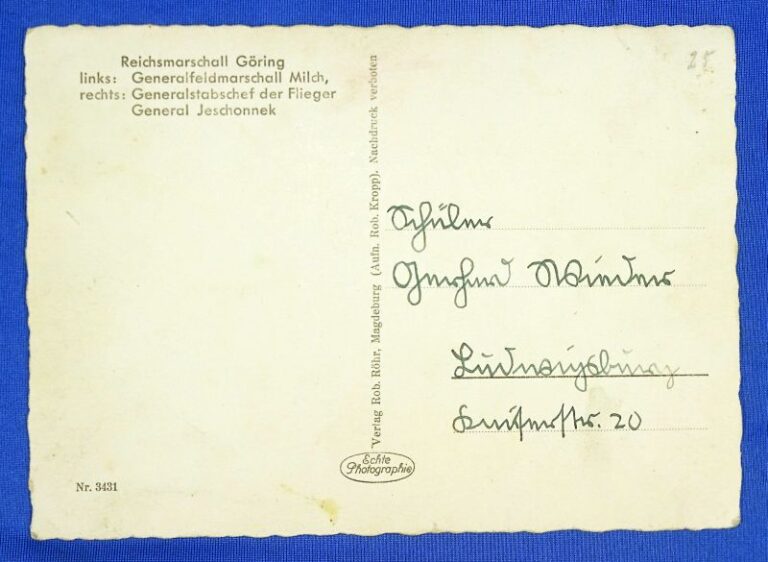 Reichsmarschall Göring
links: Generalfeldmarschall Milch,
rechts: Generalstabschef der Flieger
General Jeschonnek
25
Verlag Rob. Röhr, Magdeburg (Aufn. Rob. Kropp). Nachdruck verboten
Schüler
Gerhard Wieder
Ludwigsburg
Kaiserstr. 20
Echte
Photographie
Nr. 3431